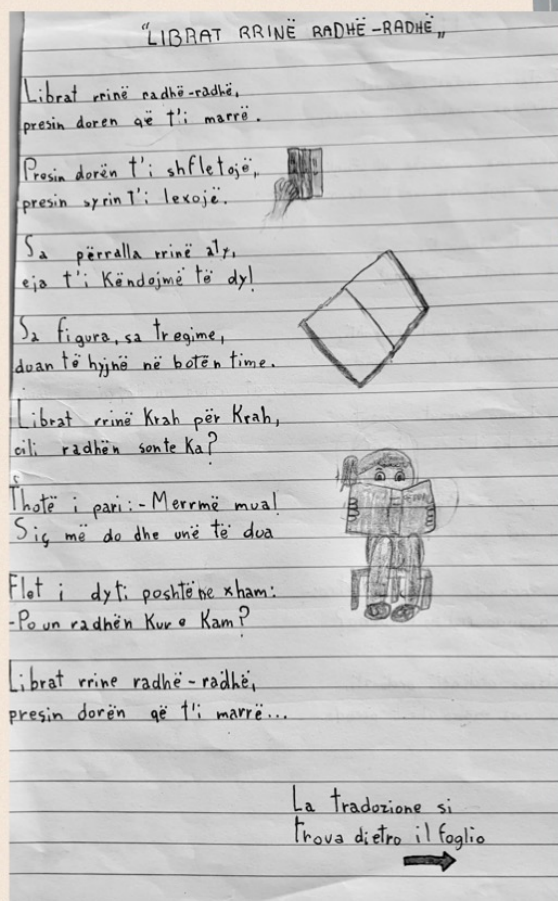 "LIBRAT RRINË RADHË-RADHË"
Librat rrinë radhë-radhë,
presin doren që t'i marrë.
Presin dorën t'i shfletojë,
presin syrin t'i lexojë.
Sa përralla rrinë aty,
eja t'i Këndojmë të dy!
Sa figura, sa tregime,
duan të hyjnë në botën time.
Librat rrinë Krah për Krah,
cili radhën sonte Ka?
Thotë i pari:-Merrmë mua!
Siç më do dhe unë të dua
Flet i dyti poshtë ne xham:
-Po un radhën Kur e Kam?
Librat rrine radhë-radhë,
presin dorën që t'i marrë...
La tradozione si
trova dietro il foglio